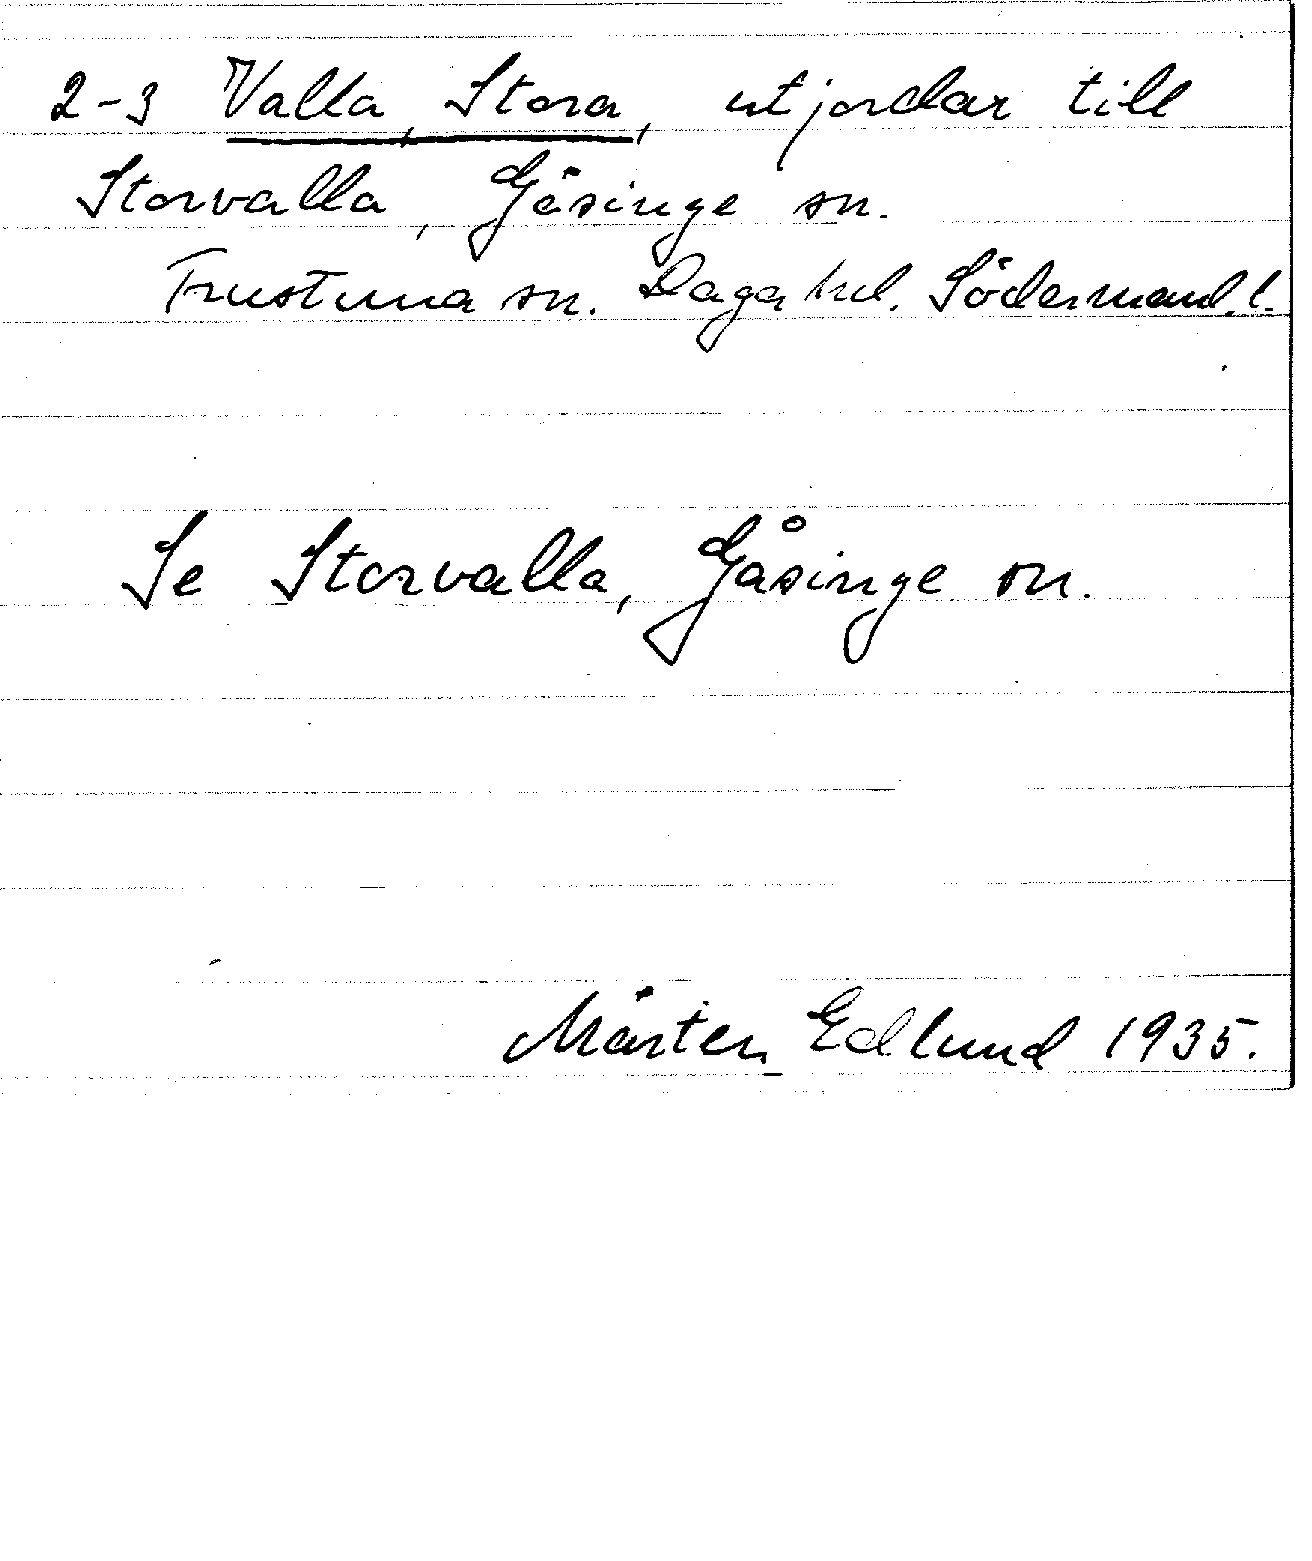 2-3 Valla, Stora, utjordar till
Storvalla, Gåsinge sn.
Frustuna sn. Daga hd. Södermanl. l.
Se Storvalla, Gåsinge sn.
Mårten Edlund 1935.